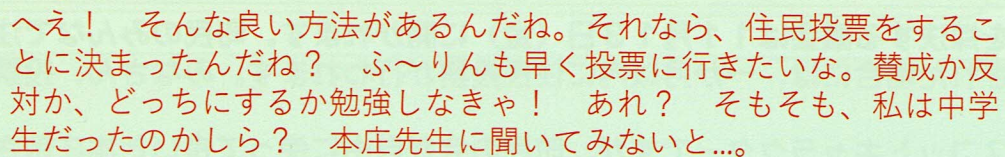 へえ！　そんな良い方法があるんだね。それなら、住民投票をするこ
とに決まったんだね？　ふ～りんも早く投票に行きたいな。賛成か反
対か、どっちにするか勉強しなきゃ！　あれ？　そもそも、私は中学
生だったのかしら？　本庄先生に聞いてみないと…。